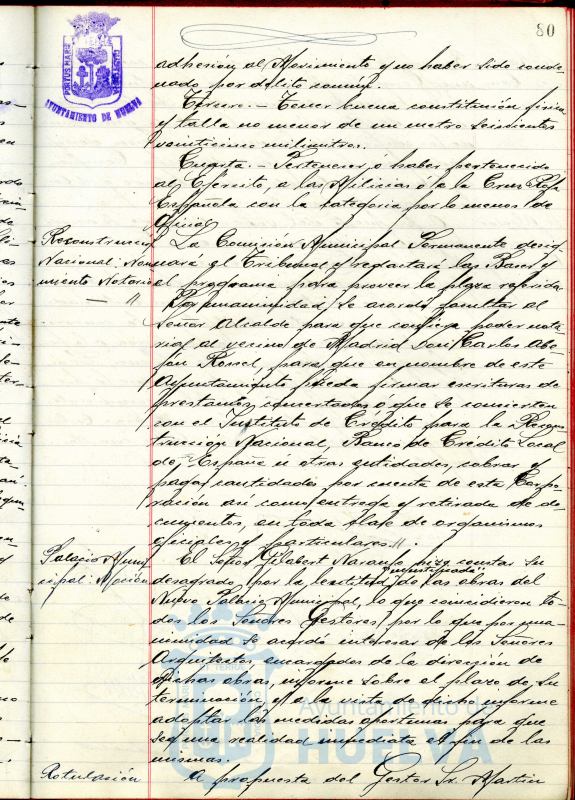 80
PORTUS MARIS
AYUNTAMIENTO DE HUELVA
adhesión al Movimiento y no haber sido conde-
nado por delito común.
Tercero.- Tener buena constitución física
y talla no menor de un metro seiscientos
veinticinco milímetros.
Cuarta.- Pertenecer o haber pertenecido
al Ejército, a las Milicias o a la Cruz Roja
Española con la categoría por lo menos de
Oficial.
La Comisión Municipal Permanente desig-
nará el Tribunal y redactará las Bases y
el programa para proveer la plaza referida
Reconstrucción
Nacional: Nom
miento Notario
Por unanimidad se acordó facultar al
Señor Alcalde para que confiera poder nota-
rial al vecino de Madrid Don Carlos
Rossel, para que en nombre de este
Ayuntamiento pueda firmar escrituras de
prestamos concertados o que se concierten
con el Instituto de Crédito para la Recons-
trucción Nacional, Banco de Crédito Local
de España u otras entidades, cobrar y
pagar cantidades por cuenta de esta Corpo-
ración así como entrega y retirada de do-
cumentos, en toda clase de organismos
oficiales y particulares.
Palacio Muni
cipal: Moción
El Señor Gilabert Naranjo hizo constar su
desagrado, por la lentitud injustificada de las obras del
Nuevo Palacio Municipal, lo que coincidieron to-
dos los Señores Gestores, por lo que por una-
nimidad se acordó interesar de los Señores
Arquitectos encargados de la dirección de
dichas obras, informe sobre el plazo de su
terminación y a la vista de dicho informe
adoptar las medidas oportunas para que
sea una realidad inmediata el fin de las
mismas.
Rotulación
A propuesta del Gestor Sr. Martin
Ayuntamiento de
HUELVA